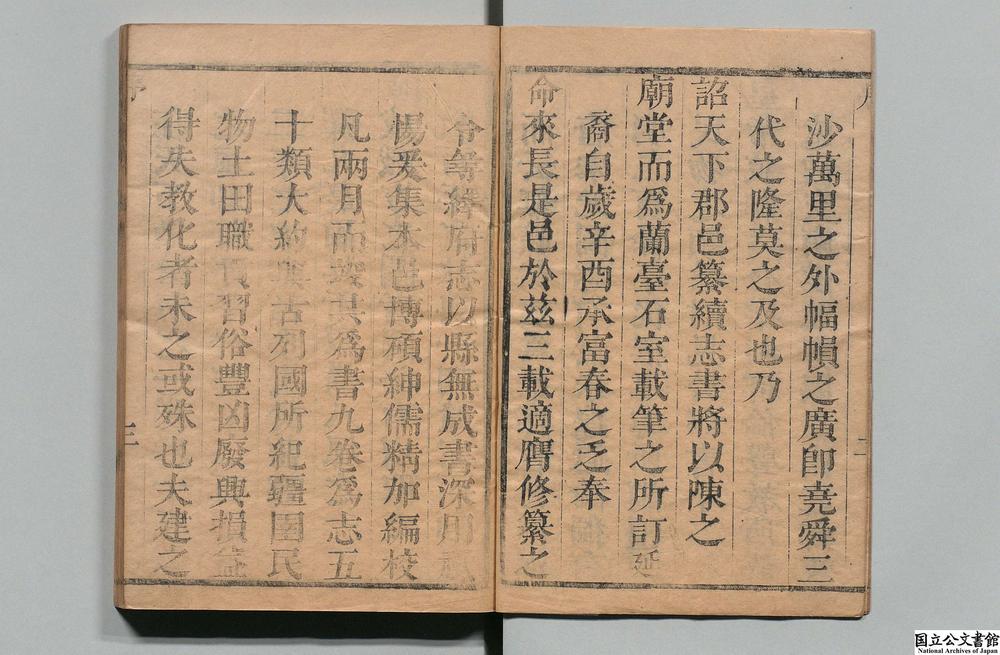 沙萬里之外幅幀之廣卽堯舜三
代之隆莫之及也乃
詔天下郡邑纂續志書將以陳之
廟堂而爲蘭臺石室載筆之所訂延
裔自歲辛酉承富春之乏奉
命來長是邑於兹三載適膺修纂之
令等緯府志以縣無成書深用
惕爰集本邑博碩紳儒精加編校
凡兩月而 其爲書九卷爲志五
十類大約 古列國所紀疆圉民
物土田職 習俗豐凶廢興損益
得失教化者未之或殊也夫建之
序
二
三
国立公文書館
National Archives of Japan